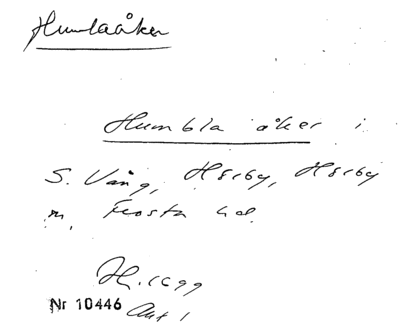 Humlaåker
Humbla åker i
S. Vång, Hörby, Hörby
n, Frosta hd.
H. 1699
Nr 10446 Akt 1